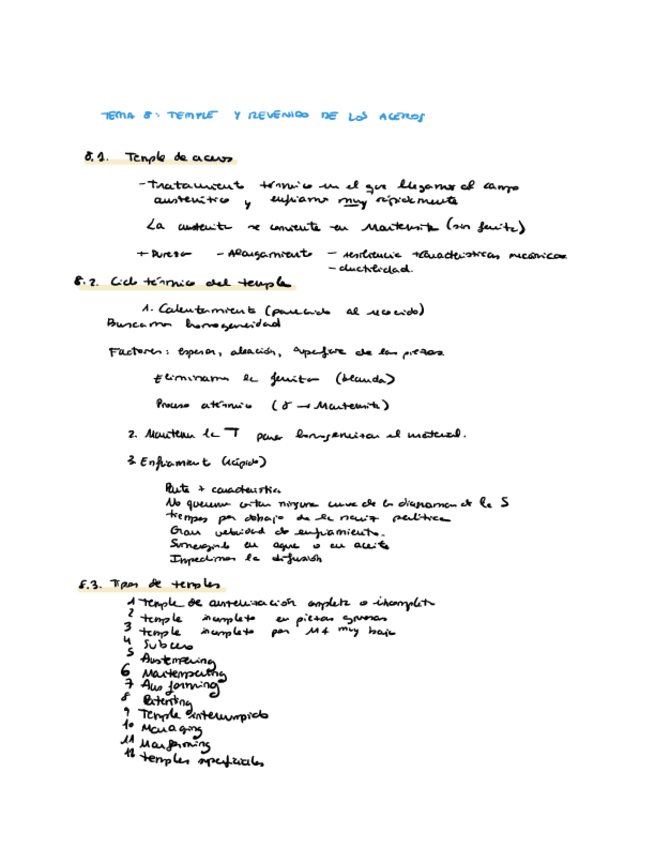 TEMA 8: TEMPLE Y REVENIDO DE LOS ACEROS
8.1. Temple de aceros
- Tratamiento térmico en el que llegamos al campo
austenítico y enfriamos muy rápidamente
La austenita se convierte en Martensita (sin ferrita)
+ Dureza - Alargamiento - resiliencia + características mecánicas
- ductilidad.
8.2. Ciclo térmico del temple
1. Calentamiento (parecido al recocido)
Buscamos homogeneidad
Factores: espesor, aleación, superficie de las piezas
Eliminamos la ferrita (blanda)
Proceso atérmico (γ → Martensita)
2. Mantener la T para homogeneizar el material.
3. Enfriamiento (rápido)
Parte + característica
No queremos cortar ninguna curva de los diagramas de la S
tiempos por debajo de la nariz perlítica
Gran velocidad de enfriamiento.
Sumergirlo en agua o en aceite
Impedimos la difusión
8.3. Tipos de temples
1 temple de austenización completa o incompleta
2 temple incompleto en piezas gruesas
3 temple incompleto por Mf muy bajo
4 Subcero
5 Austempering
6 Martempering
7 Ausforming
8 Patenting
9 Temple interrumpido
10 Maraging
11 Marforming
12 temples superficiales